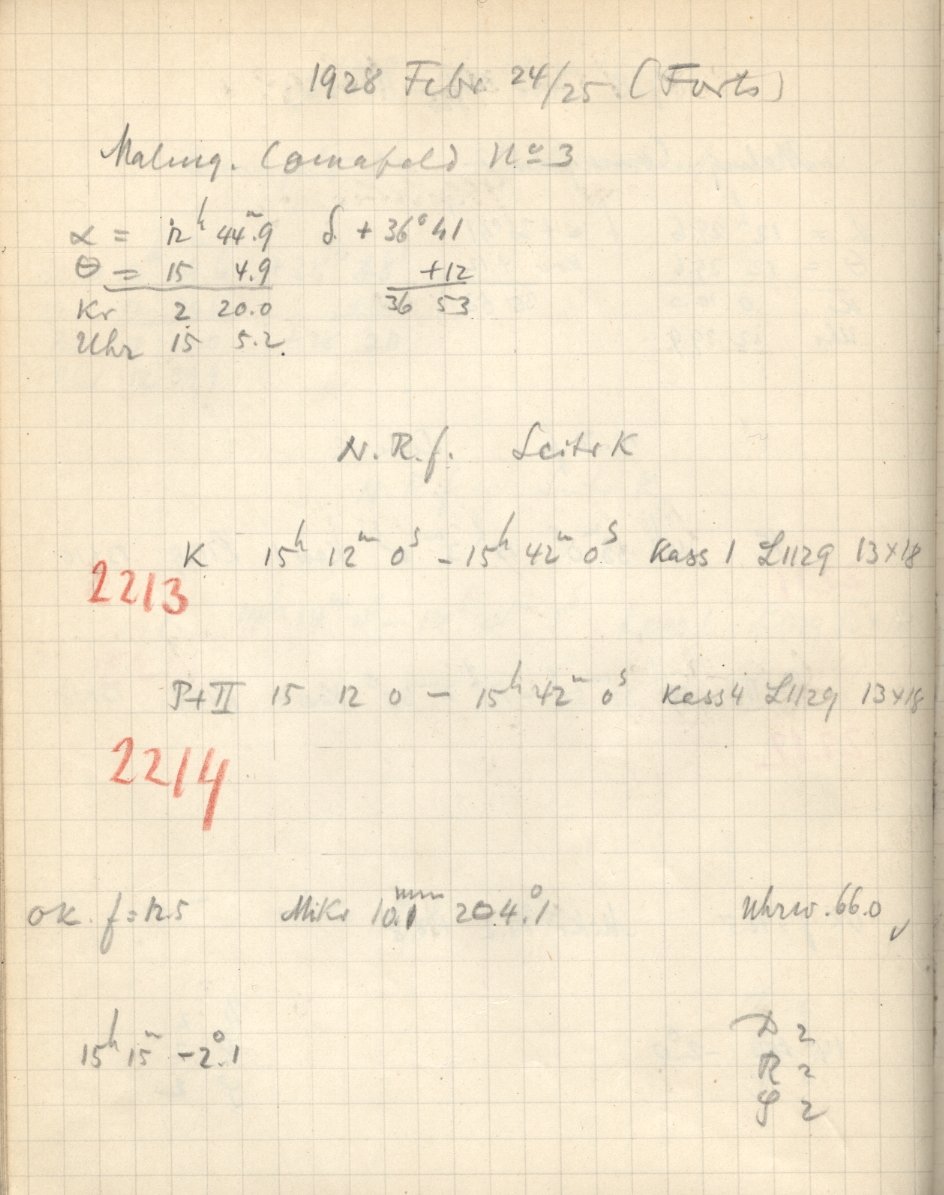 1928 Febr 24/25 (Forts)
Malmq. Comafeld No 3
α = 12h 44m.9 δ + 36° 41
θ = 15 4.9 +12
Kr 2 20.0 36 53
Uhr 15 5.2
N.R.f. Seite K
K 15h 12m 0s – 15h 42m 0s Kass 1 L1129 13×18
2213
P+II 15 12 0 – 15h 42m 0s Kass 4 L1129 13×18
2214
OK. f=12.5 Mikr 10.1mm 204.°1 Uhrw. 66.0
15h 15m –2°.1
D 2
R 2
S 2